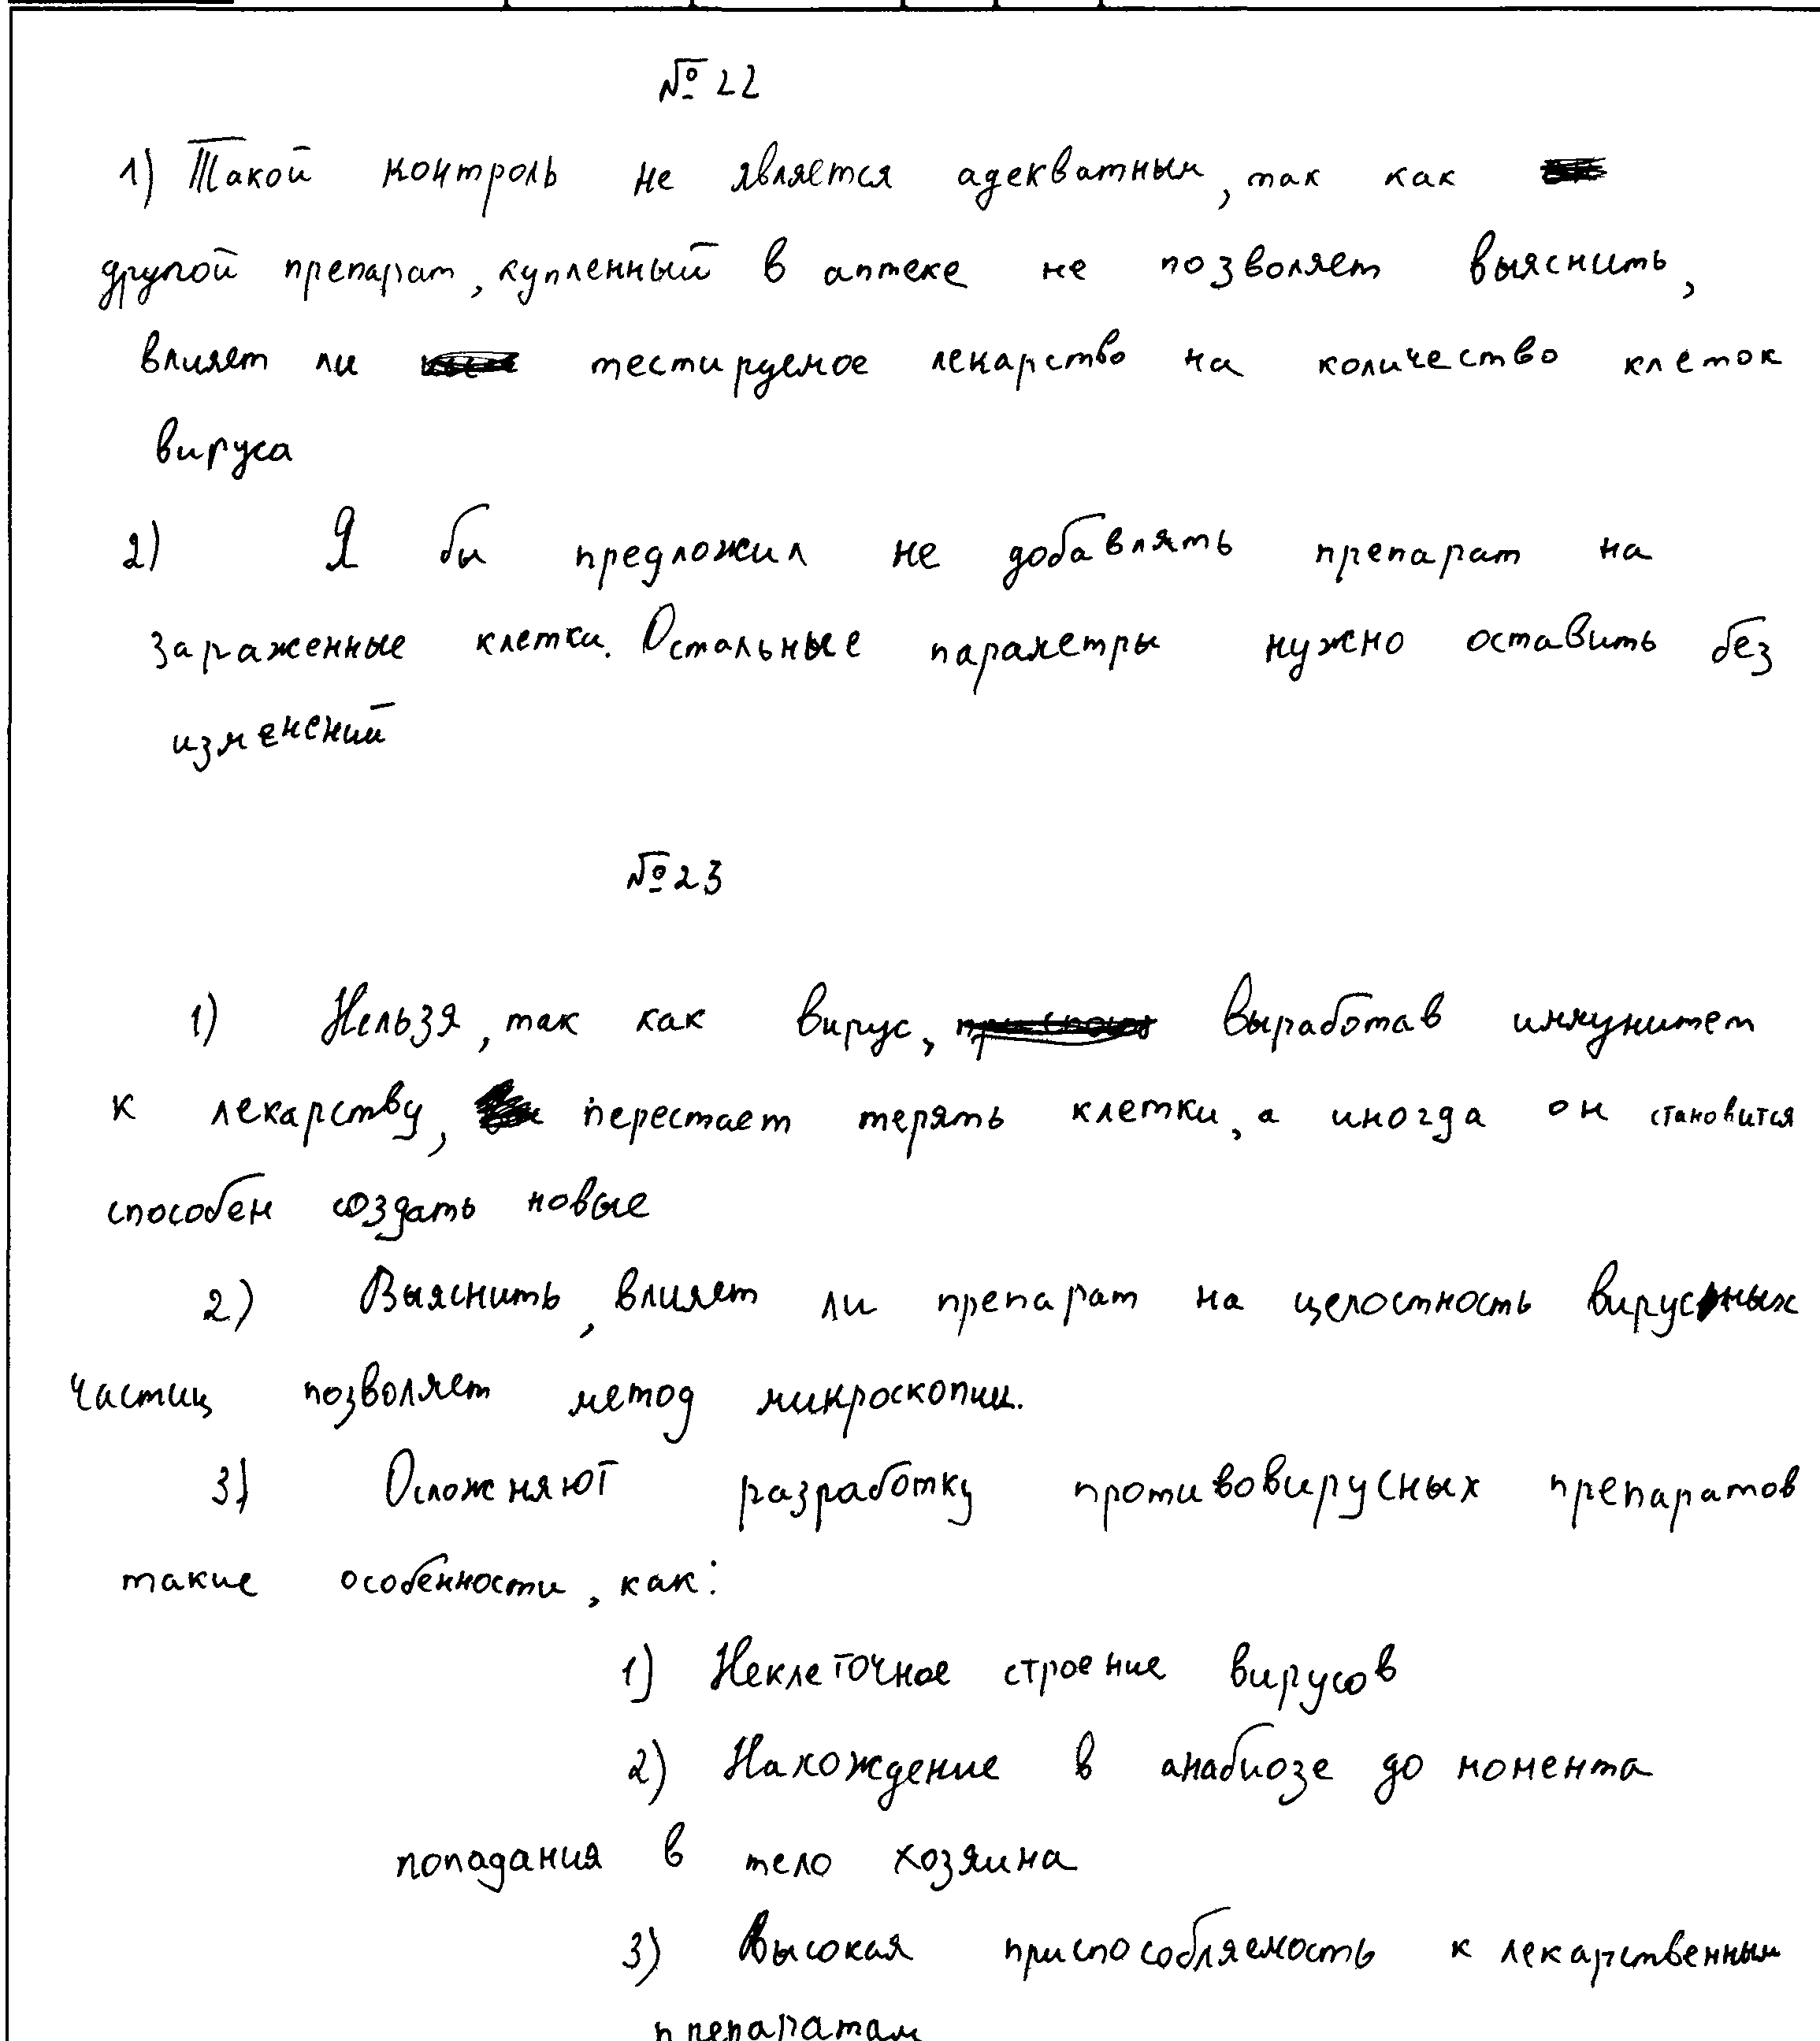 № 22
1) Такой контроль не является адекватным, так как
другой препарат, купленный в аптеке не позволяет выяснить,
влияет ли тестируемое лекарство на количество клеток
вируса
2) Я бы предложил не добавлять препарат на
зараженные клетки. Остальные параметры нужно оставить без
изменений
№ 23
1) Нельзя, так как вирус, выработав иммунитет
к лекарству, перестает терять клетки, а иногда он становится
способен создать новые
2) Выяснить, влияет ли препарат на целостность вирусных
частиц позволяет метод микроскопии.
3) Осложняют разработку противовирусных препаратов
такие особенности, как:
1) Неклеточное строение вирусов
2) Нахождение в анабиозе до момента
попадания в тело хозяина
3) Высокая приспособляемость к лекарственным
препаратам